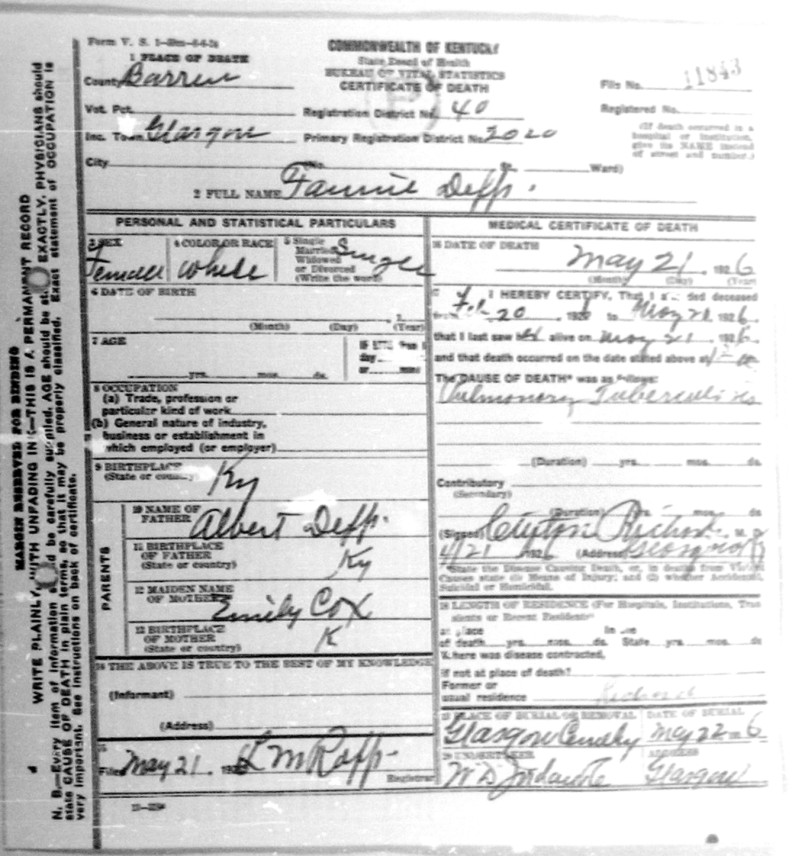 Form V. S. 1
COMMONWEALTH OF KENTUCKY
State Board of Health
BUREAU OF VITAL STATISTICS
CERTIFICATE OF DEATH
1 PLACE OF DEATH
County Barren
File No. 11843
Vot. Pct. Registration District No. 40 Registered No.
Inc. Town Glasgow Primary Registration District No. 2020
(If death occurred in a hospital or institution, give its NAME instead of street and number.)
City No. Ward)
2 FULL NAME Fannie Depp.
PERSONAL AND STATISTICAL PARTICULARS
3 SEX 4 COLOR OR RACE 5 Single Married Widowed or Divorced (Write the word)
Female White Single
6 DATE OF BIRTH
(Month) (Day) (Year)
7 AGE
yrs. mos. ds.
8 OCCUPATION
(a) Trade, profession or
particular kind of work
(b) General nature of industry,
business or establishment in
which employed (or employer)
9 BIRTHPLACE
(State or country) Ky
PARENTS
10 NAME OF
FATHER Albert Depp.
11 BIRTHPLACE
OF FATHER
(State or country) Ky
12 MAIDEN NAME
OF MOTHER Emily Cox
13 BIRTHPLACE
OF MOTHER
(State or country) K
14 THE ABOVE IS TRUE TO THE BEST OF MY KNOWLEDGE
(Informant)
(Address)
15
Filed May 21. 192 L M Rapp
Registrar
MEDICAL CERTIFICATE OF DEATH
16 DATE OF DEATH
May 21, 1926
(Month) (Day) (Year)
17 I HEREBY CERTIFY, That I deceased
from Feb 20 192 to May 21 1926.
that I last saw alive on May 21 1926.
and that death occurred on the date stated above at
The CAUSE OF DEATH* was as follows:
Pulmonary Tuberculosis
(Duration) yrs. mos. ds.
Contributory
(Secondary)
(Duration) yrs. mos. ds.
(Signed) M. D.
4/21 192 (Address) Glasgow
*State the Disease Causing Death, or, in deaths from Violent
Causes state (1) Means of Injury; and (2) whether Accidental,
Suicidal or Homicidal.
18 LENGTH OF RESIDENCE (For Hospitals, Institutions, Transients or Recent Residents)
At place In the
of death yrs. mos. ds. State yrs. mos. ds
Where was disease contracted,
if not at place of death?
Former or
usual residence
19 PLACE OF BURIAL OR REMOVAL DATE OF BURIAL
Glasgow May 22 1926
20 UNDERTAKER ADDRESS
W D Glasgow
MARGIN RESERVED FOR BINDING
WRITE PLAINLY, WITH UNFADING INK—THIS IS A PERMANENT RECORD
N. B.—Every item of information should be carefully supplied. AGE should be stated EXACTLY. PHYSICIANS should
state CAUSE OF DEATH in plain terms, so that it may be properly classified. Exact statement of OCCUPATION is
very important. See instructions on back of certificate.